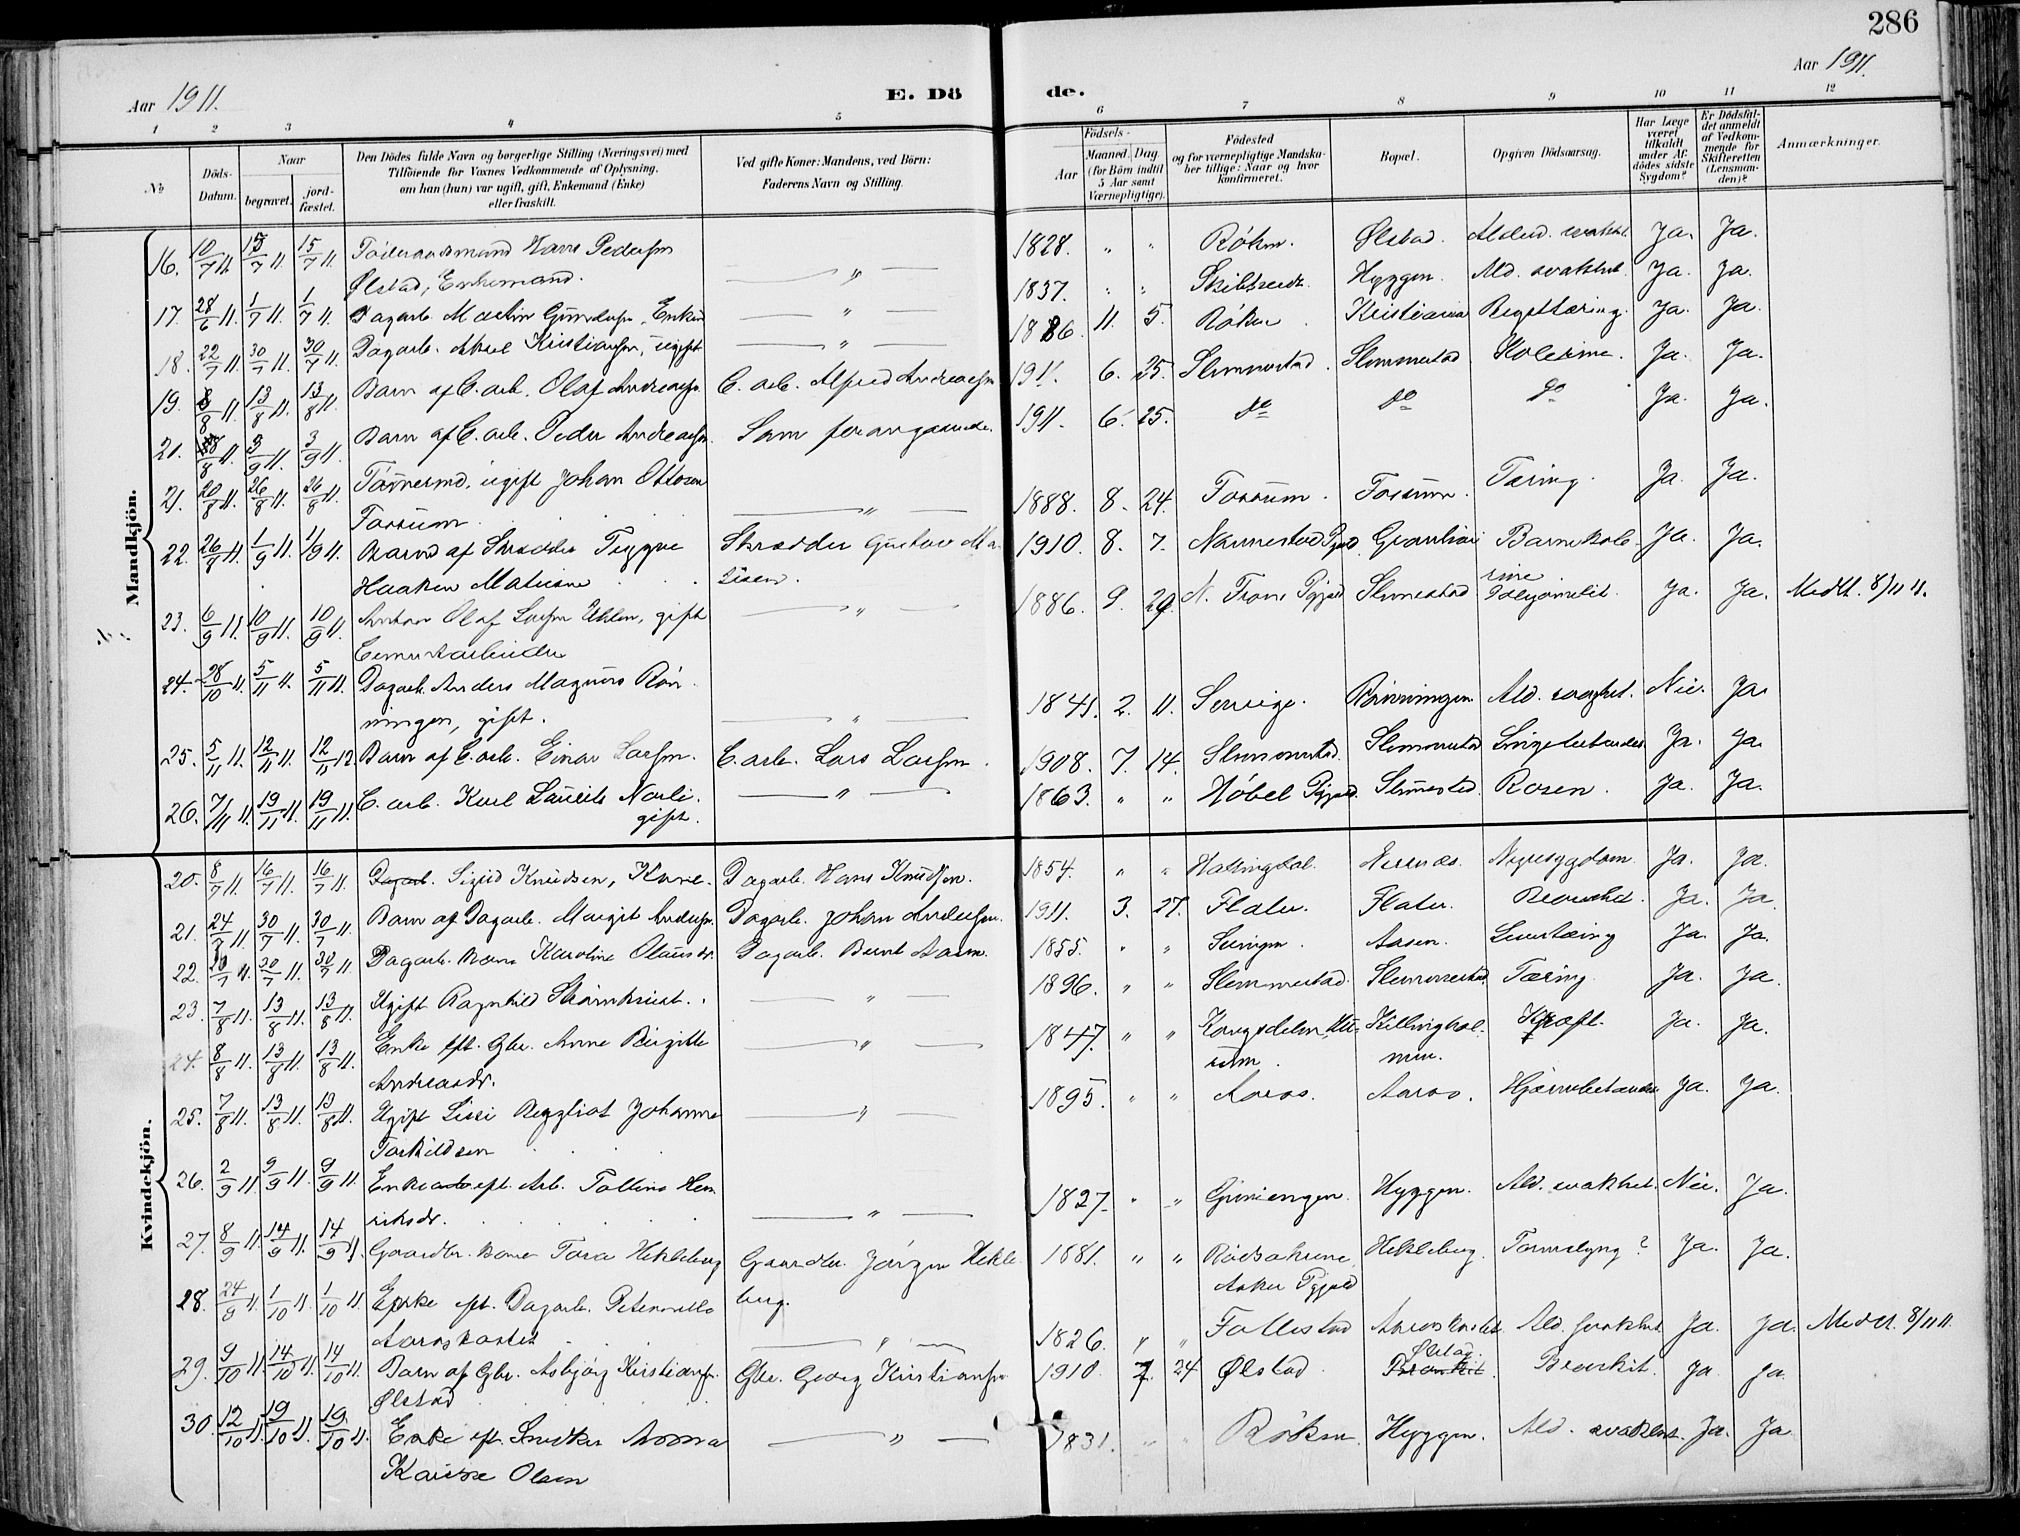 286
Aar 1911.
E. Dö de.
Aar 1911.
1 2 3 4 5 6 7 8 9 10 11 12
No
Döds-Datum.
Naar
begravet.
jord-fæstet.
Den Dödes fulde Navn og borgerlige Stilling (Næringsvei) med
Tilföiende for Voxnes Vedkommende af Oplysning,
om han (hun) var ugift, gift, Enkemand (Enke)
eller fraskilt.
Ved gifte Koner: Mandens, ved Börn:
Faderens Navn og Stilling.
Födsels-
Aar
Maaned. Dag
(for Börn indtil
5 Aar samt
Værnepligtige).
Födested
og for værnepligtige Mandska-
ber tillige: Naar og hvor
konfirmeret.
Bopæl.
Opgiven Dödsaarsag.
Har Læge
været
tilkaldt
under Af-
dödes sidste
Sygdom?
Er Dödsfal-
det anmeldt
af Vedkom-
mende for
Skifteretten
(Lensman-
den)?
Anmærkninger.
Mandkjön.
16. 10/7 11. 15/7 11. 15/7 11. Föderaadsmand Hans Pedersen 1828. " " Røken. Ølstad. Alderd. svakhet. Ja. Ja.
Ølstad, Enkemand. — " —
17. 28/6 11. 1/7 11. 1/7 11. Dagarb. Martin Gundersen, Enkem. — " — 1837. " " Skibtvedt. Hyggen. Ald. svakhet. Ja. Ja.
18. 22/7 11. 30/7 11. 30/7 11. Dagarb. Aksel Kristiansen, ugift — " — 1886. 11. 5. Røken. Kristiania Brysttæring. Ja. Ja.
19. 8/8 11. 13/8 11. 13/8 11. Barn af C. arb. Olaf Andreasen C. arb. Alfred Andreasen 1911. 6. 25. Slemmestad. Slemmestad Kolerine. Ja. Ja.
21. 28/8 11. 3/9 11. 3/9 11. Barn af C. arb. Peder Andreasen. Som foregaaende. 1911. 6. 25. do do do Ja. Ja.
21. 20/8 11. 26/8 11. 26/8 11. Tømmermd. ugift Johan Ottosen
Fossum. — " — 1888. 8. 24. Fossum. Fossum. Tæring. Ja. Ja.
22. 26/8 11. 1/9 11. 1/9 11. Barn af Skrædder Trygve Skrædder Gustav Ma- 1910. 8. 7. Nannestad Pgjæld Granli Barnekole- Ja. Ja.
Haakon Matisen tisen. rine.
23. 6/9 11. 10/9 11. 10/9 11. Anton Olaf Larsen Ekhen, gift — " — 1886. 9. 29. N. Tron Pgjæld Slemmestad Ja. Ja. Meddt. 8/11 11.
Cementarbeider
24. 28/10 11. 5/11 11. 5/11 11. Dagarb. Anders Magnus Røn-
ningen, gift. — " — 1841. 2. 11. Sverige. Rønningen Ald. svaghet. Nei. Ja.
25. 5/11 11. 12/11 11. 12/11 12. Barn af C. arb. Einar Larsen. C. arb. Lars Larsen. 1908. 7. 14. Slemmestad. Slemmestad Ja. Ja.
26. 7/11 11. 19/11 11. 19/11 11. C. arb. Karl Laurits Norli. — " — 1863. " " Høbøl Pgjæld. Slemmestad Rosen. Ja. Ja.
gift.
Kvindekjön.
20. 8/7 11. 16/7 11. 16/7 11. Dagarb. Sigrid Knudsen, Kone. Dagarb. Hans Knudsen. 1854. " " Hallingdal. Nærsnæs. Nyresygdom. Ja. Ja.
21. 24/7 11. 30/7 11. 30/7 11. Barn af Dagarb. Margit Andersen. Dagarb. Johan Andersen. 1911. 3. 27. Flater. Flater. Bronchit. Ja. Ja.
22. 20/7 11. 30/7 11. 30/7 11. Dagarb. Kone Karoline Olausdr. Dagarb. Bernt Aasen. 1855. " " Aasen. Ja. Ja.
23. 7/8 11. 13/8 11. 13/8 11. Ugift Ragnhild — " — 1896. " " Slemmestad. Slemmestad. Tæring. Ja. Ja.
24. 8/8 11. 13/8 11. 13/8 11. Enke eft. Gbr. Anne Birgitte — " — 1847. " " Kongsdelen, Hu- Killinghol- Kræft. Ja. Ja.
Andreasdr. rum. men.
25. 7/8 11. 13/8 11. 13/8 11. Ugift Lissi Johanne — " — 1895. " " Aaros. Aaros. Hjernebetændelse Ja. Ja.
Torkildsen
26. 2/9 11. 9/9 11. 9/9 11. Enke eft. Arb. Tolline Hen-
riksdr. — " — 1827. " " Hyggen. Ald. svakhet. Nei. Ja.
27. 8/9 11. 14/9 11. 14/9 11. Gaardbr. Kone Tora Hekleberg Gaardbr. Jørgen Hekle- 1881. " " Hekleberg. Ja. Ja.
berg. Asker Pgjæld
28. 24/9 11. 1/10 11. 1/10 11. Enke eft. Dagarb. Petronelle
— " — 1826. " " Follestad Ald. svakhet Ja. Ja. Meddt. 8/11 11.
29. 9/10 11. 14/10 11. 14/10 11. Barn af Gbr. Asbjørg Kristiansen. Gbr. Georg Kristiansen 1910. 7. 24 Ølstad. Bronkit. Ølstad. Bronkit. Ja. Ja.
Ølstad
30. 12/10 11. 19/10 11. 19/10 11. Enke eft. Snedker Anna — " — 1831. " " Røken. Hyggen. Ald. svakhet. Ja. Ja.
Kaisa Olsen